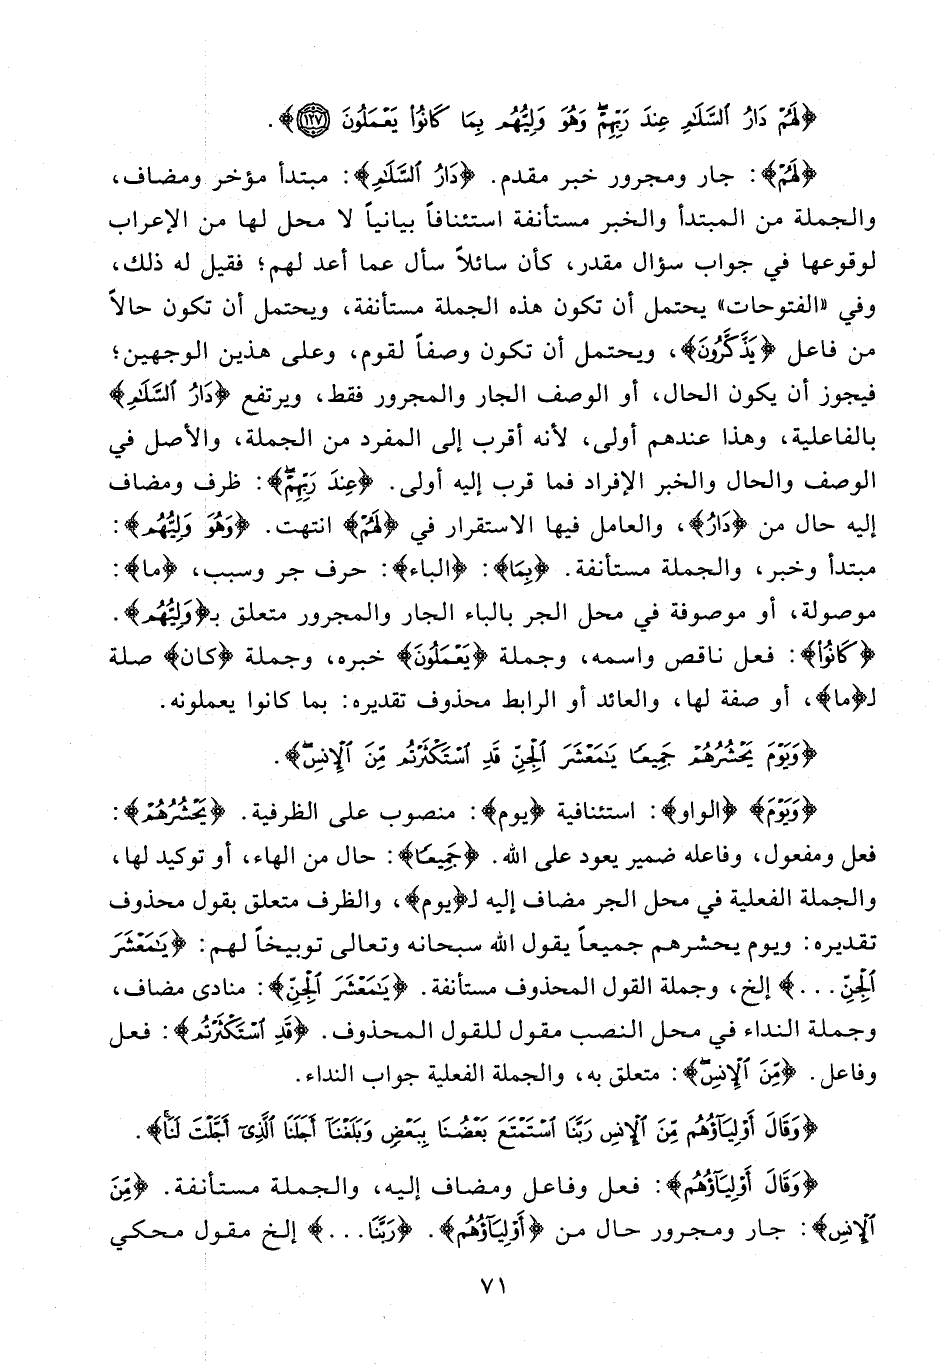 ﴿لَهُمْ دَارُ ٱلسَّلَٰمِ عِندَ رَبِّهِمْ ۖ وَهُوَ وَلِيُّهُم بِمَا كَانُوا۟ يَعْمَلُونَ ١٢٧﴾.
﴿لَهُمْ﴾: جار ومجرور خبر مقدم. ﴿دَارُ ٱلسَّلَٰمِ﴾: مبتدأ مؤخر ومضاف،
والجملة من المبتدأ والخبر مستأنفة استئنافاً بيانياً لا محل لها من الإعراب
لوقوعها في جواب سؤال مقدر، كأن سائلاً سأل عما أعد لهم؛ فقيل له ذلك،
وفي «الفتوحات» يحتمل أن تكون هذه الجملة مستأنفة، ويحتمل أن تكون حالاً
من فاعل ﴿يَذَّكَّرُونَ﴾، ويحتمل أن تكون وصفاً لقوم، وعلى هذين الوجهين؛
فيجوز أن يكون الحال، أو الوصف الجار والمجرور فقط، ويرتفع ﴿دَارُ ٱلسَّلَٰمِ﴾
بالفاعلية، وهذا عندهم أولى، لأنه أقرب إلى المفرد من الجملة، والأصل في
الوصف والحال والخبر الإفراد فما قرب إليه أولى. ﴿عِندَ رَبِّهِمْ ۖ﴾: ظرف ومضاف
إليه حال من ﴿دَارُ﴾، والعامل فيها الاستقرار في ﴿لَهُمْ﴾ انتهت. ﴿وَهُوَ وَلِيُّهُم﴾:
مبتدأ وخبر، والجملة مستأنفة. ﴿بِمَا﴾: ﴿الباء﴾: حرف جر وسبب، ﴿ما﴾:
موصولة، أو موصوفة في محل الجر بالباء الجار والمجرور متعلق بـ﴿وَلِيُّهُم﴾.
﴿كَانُوا۟﴾: فعل ناقص واسمه، وجملة ﴿يَعْمَلُونَ﴾ خبره، وجملة ﴿كان﴾ صلة
لـ﴿ما﴾، أو صفة لها، والعائد أو الرابط محذوف تقديره: بما كانوا يعملونه.
﴿وَيَوْمَ يَحْشُرُهُمْ جَمِيعًا يَٰمَعْشَرَ ٱلْجِنِّ قَدِ ٱسْتَكْثَرْتُم مِّنَ ٱلْإِنسِ ۖ﴾.
﴿وَيَوْمَ﴾ ﴿الواو﴾: استئنافية ﴿يوم﴾: منصوب على الظرفية. ﴿يَحْشُرُهُمْ﴾:
فعل ومفعول، وفاعله ضمير يعود على الله. ﴿جَمِيعًا﴾: حال من الهاء، أو توكيد لها،
والجملة الفعلية في محل الجر مضاف إليه لـ﴿يوم﴾، والظرف متعلق بقول محذوف
تقديره: ويوم يحشرهم جميعاً يقول الله سبحانه وتعالى توبيخاً لهم: ﴿يَٰمَعْشَرَ
ٱلْجِنِّ...﴾ إلخ، وجملة القول المحذوف مستأنفة. ﴿يَٰمَعْشَرَ ٱلْجِنِّ﴾: منادى مضاف،
وجملة النداء في محل النصب مقول للقول المحذوف. ﴿قَدِ ٱسْتَكْثَرْتُم﴾: فعل
وفاعل. ﴿مِّنَ ٱلْإِنسِ ۖ﴾: متعلق به، والجملة الفعلية جواب النداء.
﴿وَقَالَ أَوْلِيَآؤُهُم مِّنَ ٱلْإِنسِ رَبَّنَا ٱسْتَمْتَعَ بَعْضُنَا بِبَعْضٍ وَبَلَغْنَآ أَجَلَنَا ٱلَّذِىٓ أَجَّلْتَ لَنَا ۚ﴾.
﴿وَقَالَ أَوْلِيَآؤُهُم﴾: فعل وفاعل ومضاف إليه، والجملة مستأنفة. ﴿مِّنَ
ٱلْإِنسِ﴾: جار ومجرور حال من ﴿أَوْلِيَآؤُهُم﴾. ﴿رَبَّنَا...﴾ إلخ مقول محكي
٧١